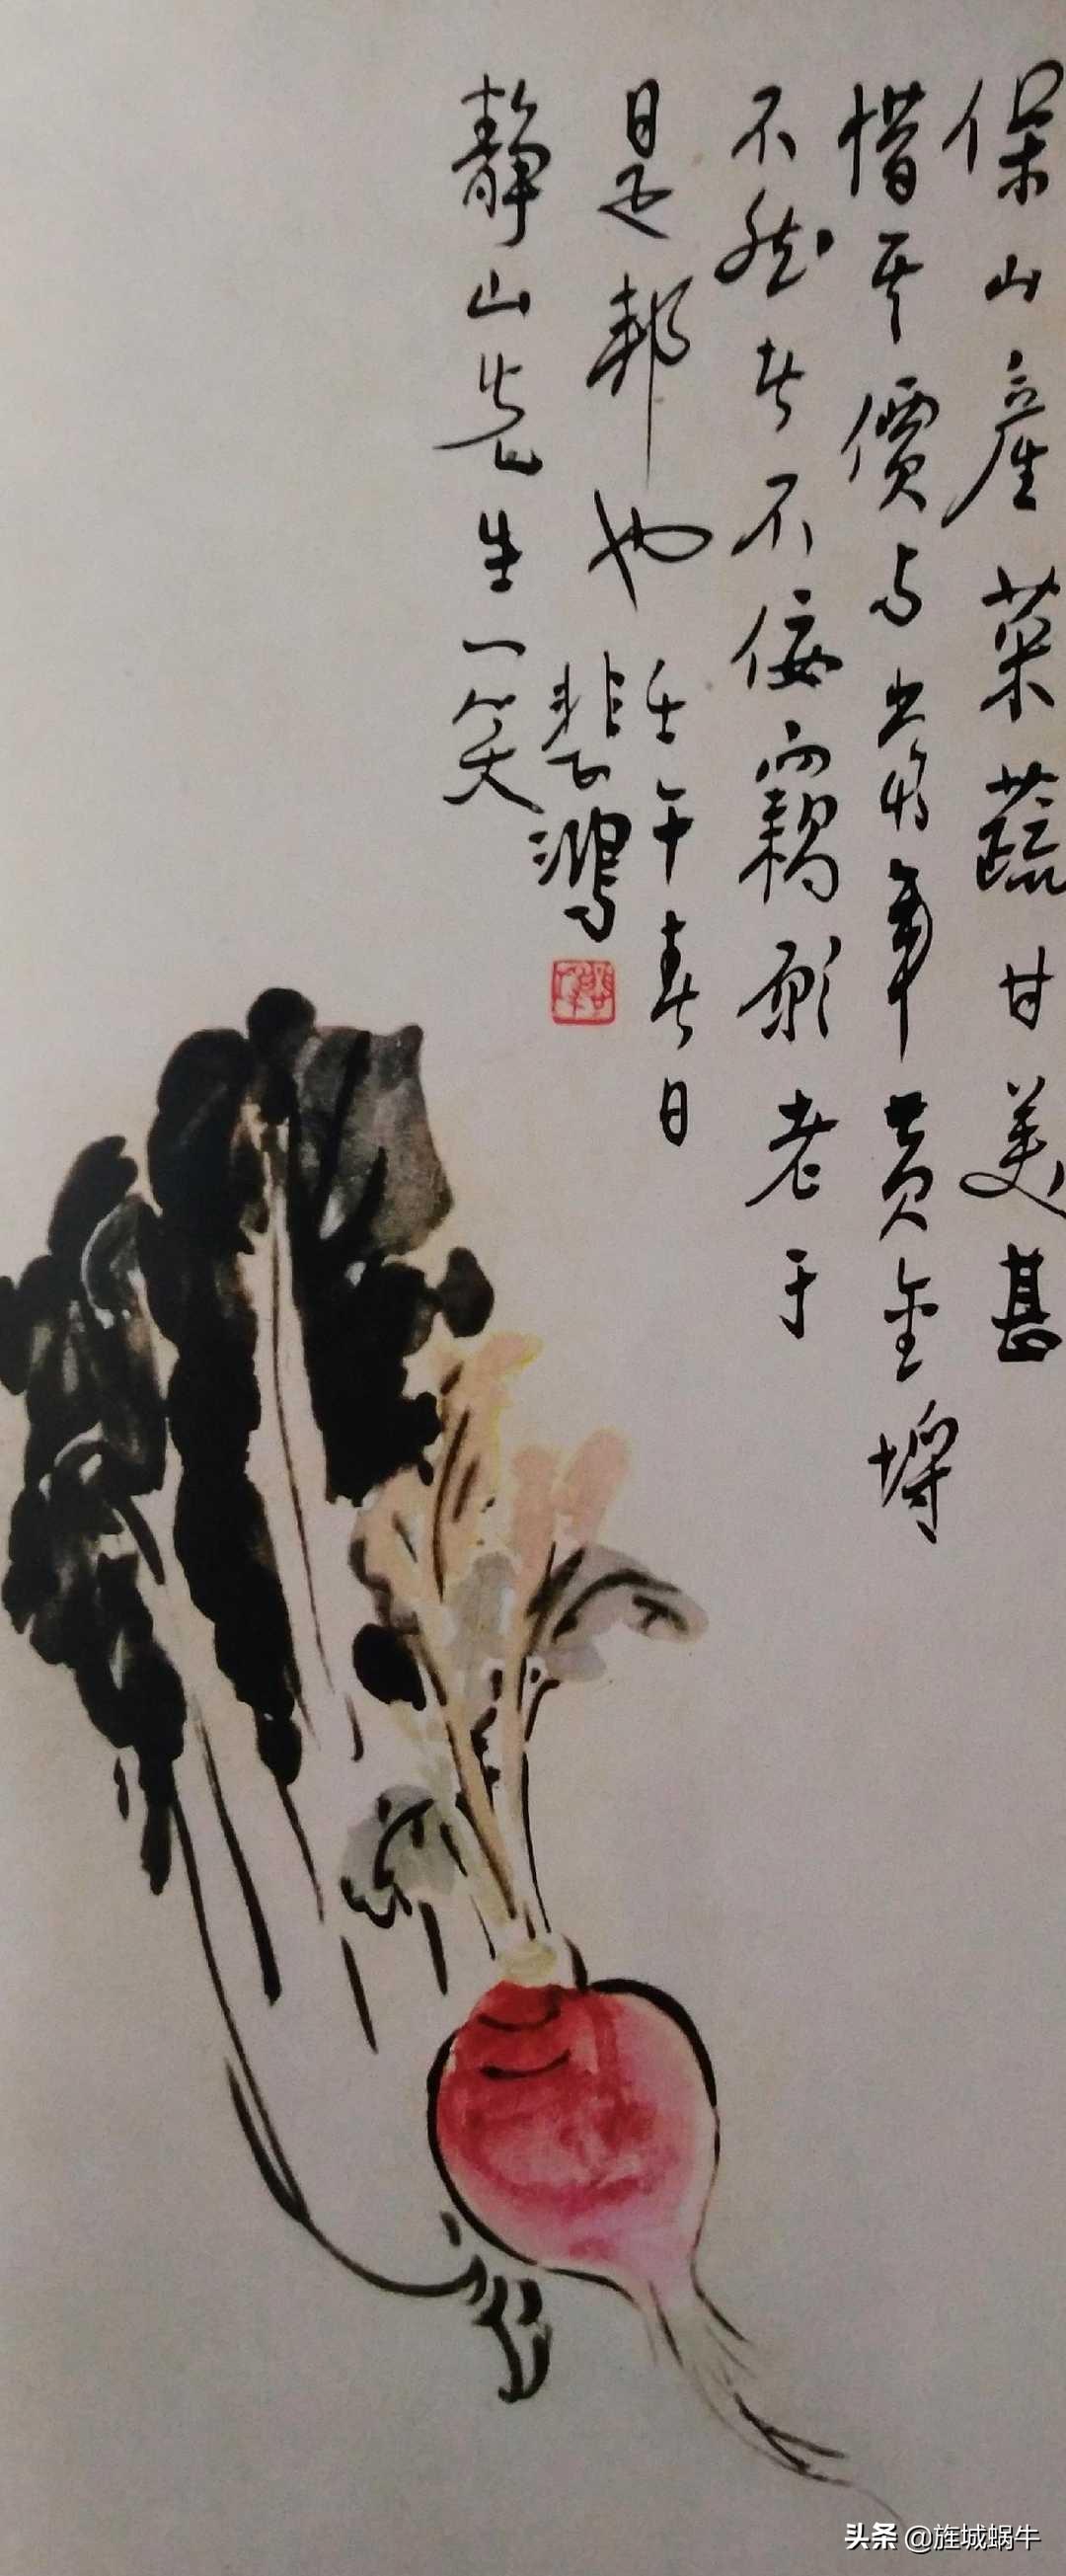 保山產菜蔬甘美甚
惜其價与當年黄金埒
不然者不佞竊願老于
是邦也
壬午春日
悲鴻
靜山先生一笑
头条 @旌城蜗牛